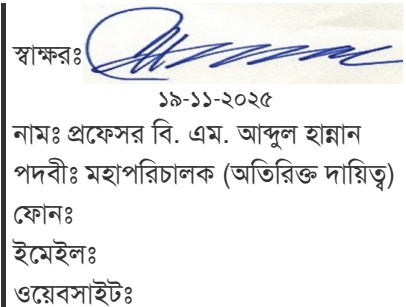 স্বাক্ষরঃ
১৯-১১-২০২৫
নামঃ প্রফেসর বি. এম. আব্দুল হান্নান
পদবীঃ মহাপরিচালক (অতিরিক্ত দায়িত্ব)
ফোনঃ
ইমেইলঃ
ওয়েবসাইটঃ